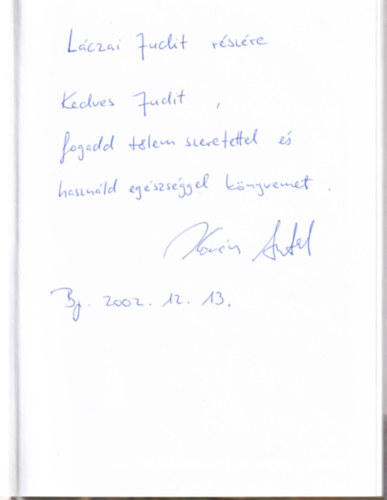 Láczai Judit részére
Kedves Judit ,
fogadd tőlem szeretettel és
használd egészséggel könyvemet .
Bp. 2002. 12. 13.